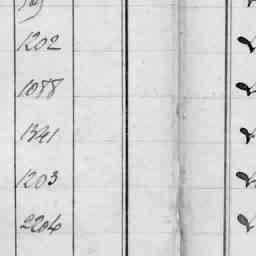 1202
1088
1341
1203
2204